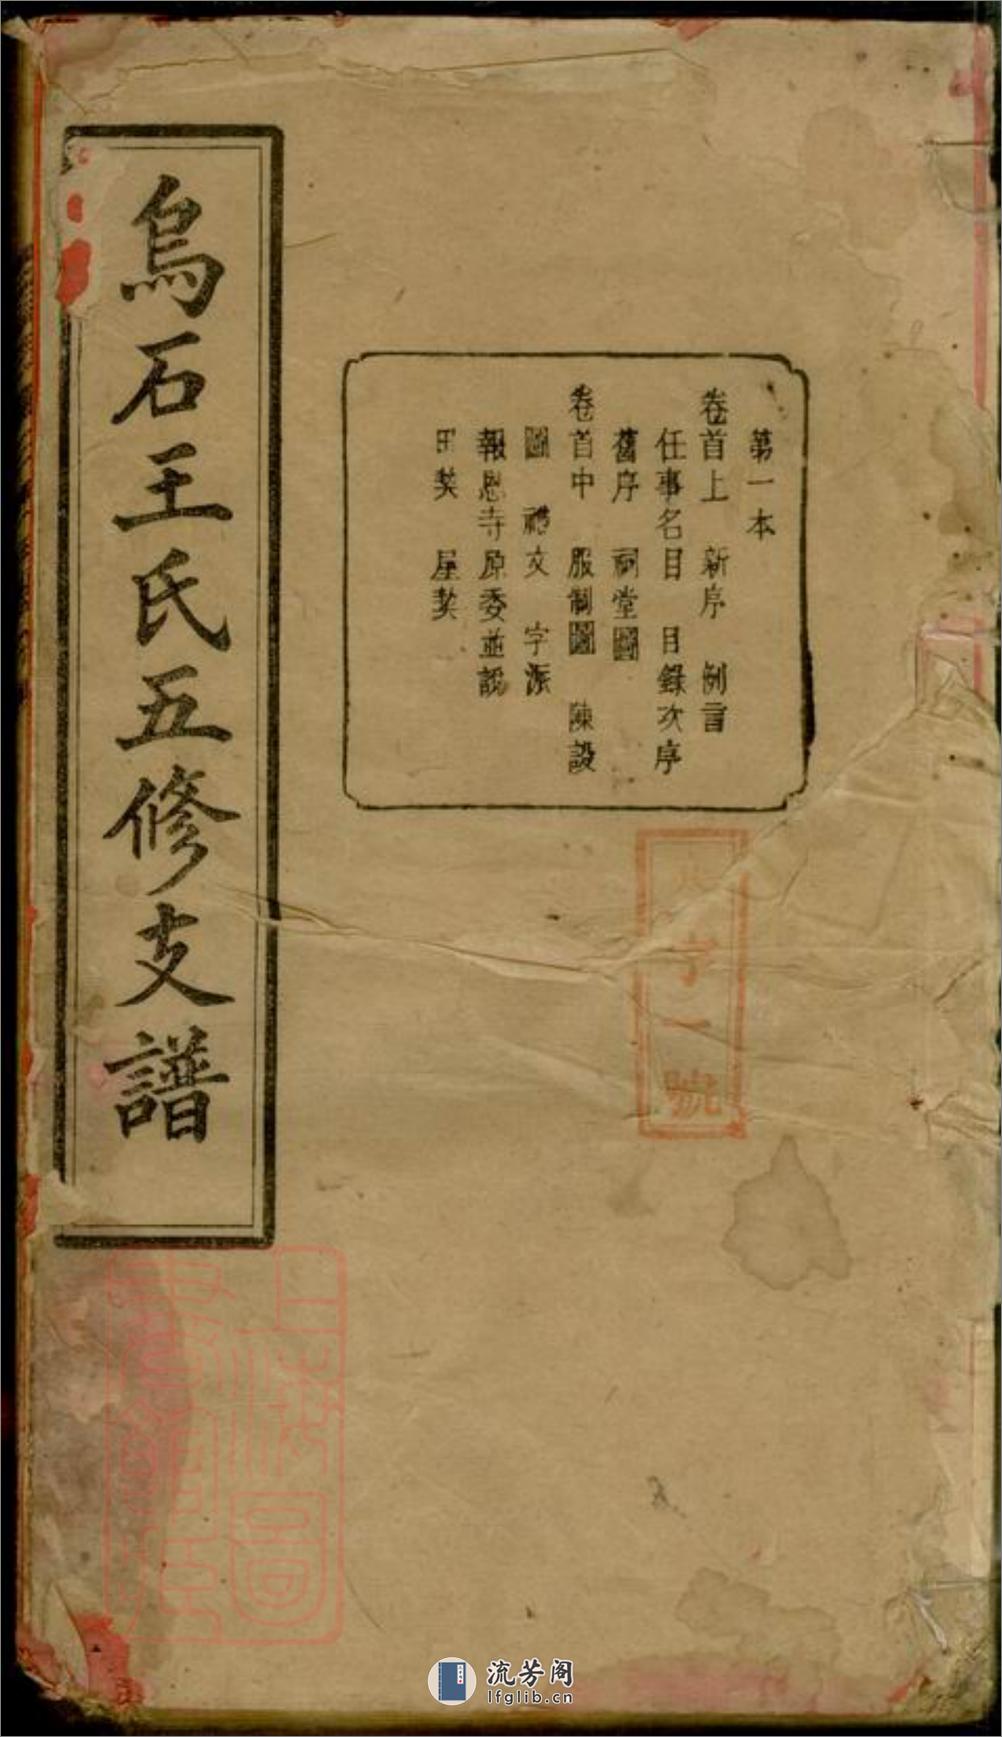 烏石王氏五修支譜
第一本
卷首上 新序 例言
任事名目 目錄次序
舊序 祠堂圖
卷首中 服制圖 陳設
圖 禮文 字派
報恩寺原委並說
田契 屋契
字一號
上海圖
書館藏
流芳阁
lfglib.cn